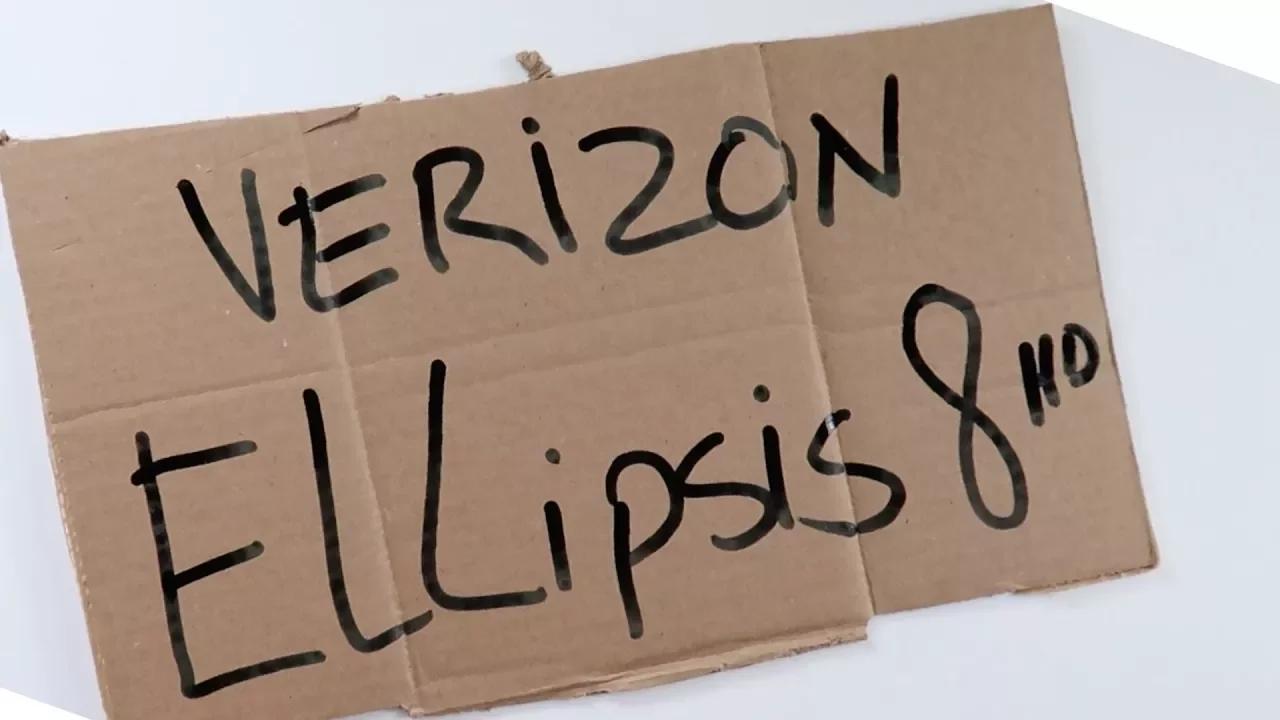 VERiZON
ELLipsis 8 HD